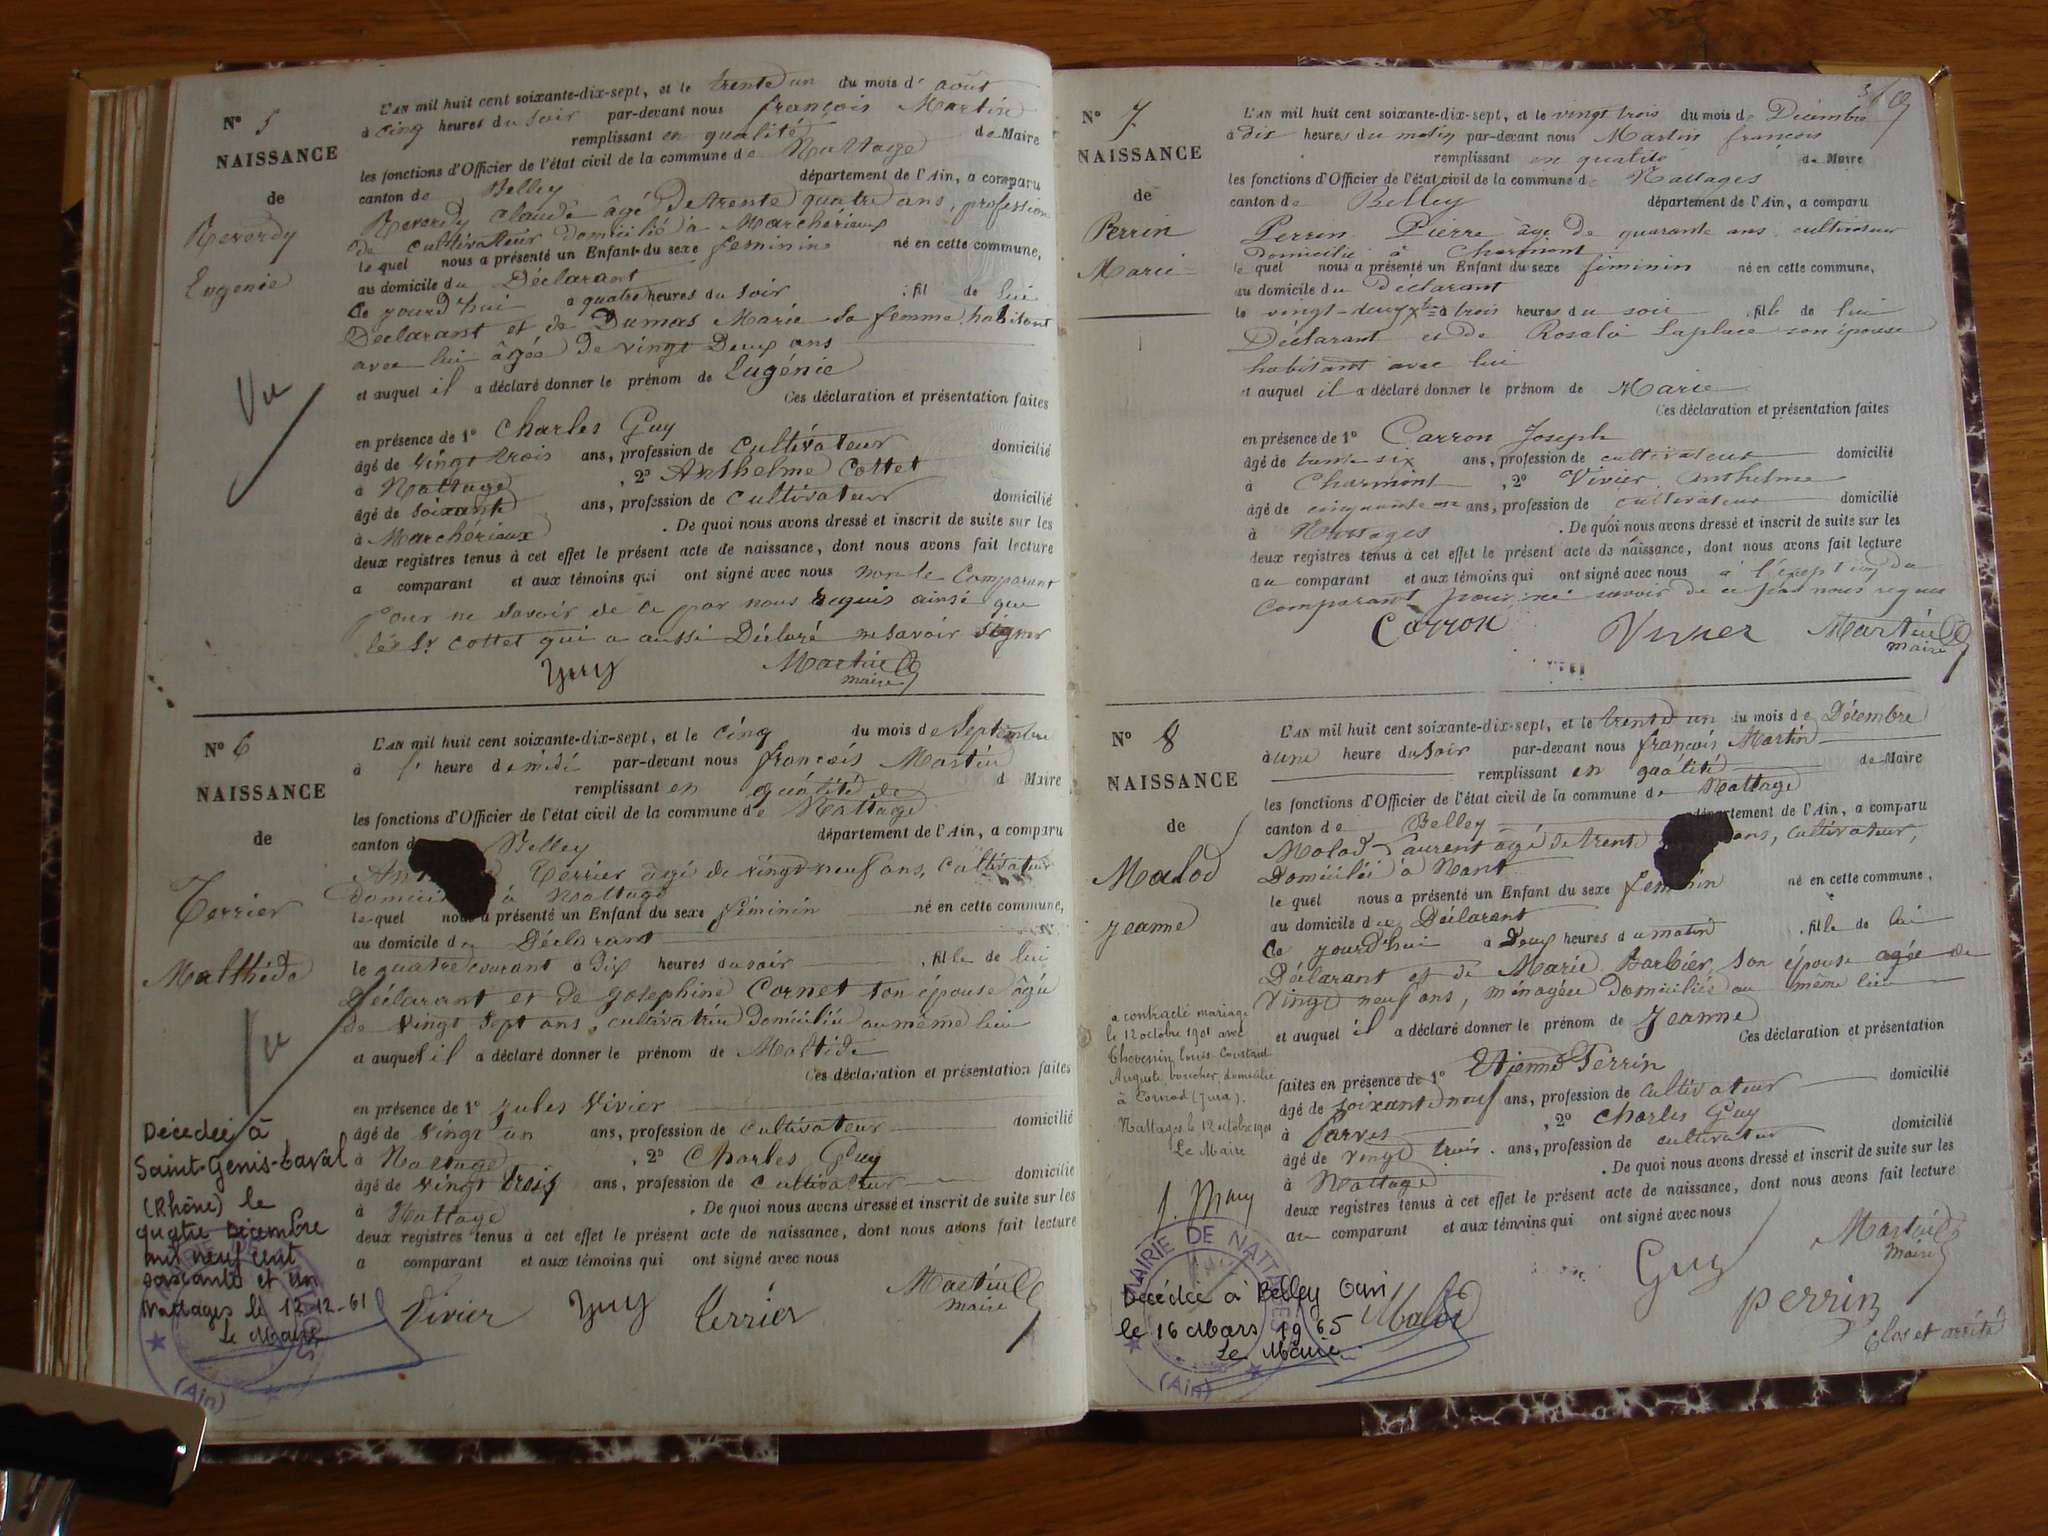 N° 5
NAISSANCE
de
Reverdy
Eugenie
Vu
L'AN mil huit cent soixante-dix-sept, et le trente un du mois d' août
à cinq heures du soir par-devant nous françois Martin
remplissant en qualité de Maire
les fonctions d'Officier de l'état civil de la commune de Nattage
canton de Belley département de l'Ain, a comparu
Reverdy claude âgé de trente quatre ans, profession
de cultivateur domicilié à Marchérieux
le quel nous a présenté un Enfant du sexe feminine né en cette commune,
au domicile du Déclarant
Ce jourd'hui à quatre heures du soir fil de lui
Déclarant et de Dumas Marie sa femme habitant
avec lui âgée de vingt Deux ans
et auquel il a déclaré donner le prénom de Eugénie
Ces déclaration et présentation faites
en présence de 1° Charles Guy
âgé de vingt trois ans, profession de cultivateur domicilié
à Nattage , 2° Anthelme Cottet
âgé de soixante ans, profession de cultivateur domicilié
à Marchérieux . De quoi nous avons dressé et inscrit de suite sur les
deux registres tenus à cet effet le présent acte de naissance, dont nous avons fait lecture
a comparant et aux témoins qui ont signé avec nous non le Comparant
pour ne savoir de ce par nous requis ainsi que
le Sr Cottet qui a aussi Déclaré ne savoir signer
Guy Martin
maire
N° 6
NAISSANCE
de
Terrier
Malthide
Vu
L'AN mil huit cent soixante-dix-sept, et le cinq du mois de Septembre
à 1 heure de midi par-devant nous françois Martin
remplissant en qualité de d Maire
les fonctions d'Officier de l'état civil de la commune de Nattage
canton d Belley département de l'Ain, a comparu
Terrier âgé de vingt neuf ans, cultivateur
à Nattage
le quel nous a présenté un Enfant du sexe féminin né en cette commune,
au domicile du Déclarant
le quatre courant à Dix heures du soir , fille de lui
Déclarant et de Josephine Cornet son épouse âgée
de vingt sept ans, cultivatrice Domiciliée au même lieu
et auquel il a déclaré donner le prénom de Maltide
Ces déclaration et présentation faites
en présence de 1° Jules Vivier
âgé de vingt un ans, profession de cultivateur domicilié
à Nattage , 2° Charles Guy
âgé de vingt trois ans, profession de cultivateur domicilié
à Nattage . De quoi nous avons dressé et inscrit de suite sur les
deux registres tenus à cet effet le présent acte de naissance, dont nous avons fait lecture
a comparant et aux témoins qui ont signé avec nous
Vivier Guy Terrier Martin
maire
Décédée à
Saint-Genis-Laval
(Rhône) le
quatre Décembre
mil neuf cent
soixante et un
Nattages le 12-12-61
Le Maire
(Ain)
N° 7
NAISSANCE
de
Perrin
Marie
L'AN mil huit cent soixante-dix-sept, et le vingt trois du mois de Décembre
à dix heures du matin par-devant nous Martin françois
remplissant en qualité de Maire
les fonctions d'Officier de l'état civil de la commune de Nattages
canton de Belley département de l'Ain, a comparu
Perrin Pierre âgé de quarante ans cultivateur
Domicilié à Charmont
le quel nous a présenté un Enfant du sexe féminin né en cette commune,
au domicile du Déclarant
le vingt-deux à trois heures du soir , fille de lui
Déclarant et de Rosalie Laplace son épouse
habitant avec lui
et auquel il a déclaré donner le prénom de Marie
Ces déclaration et présentation faites
en présence de 1° Carron Joseph
âgé de trente six ans, profession de cultivateur domicilié
à Charmont , 2° Vivier Anthelme
âgé de cinquante ans, profession de cultivateur domicilié
à Nattages . De quoi nous avons dressé et inscrit de suite sur les
deux registres tenus à cet effet le présent acte de naissance, dont nous avons fait lecture
au comparant et aux témoins qui ont signé avec nous à l'exception du
comparant pour ne savoir de ce par nous requis
Carron Vivier Martin
maire
N° 8
NAISSANCE
de
Malod
Jeanne
L'AN mil huit cent soixante-dix-sept, et le trente un du mois de Décembre
à une heure du soir par-devant nous françois Martin
remplissant en qualité de Maire
les fonctions d'Officier de l'état civil de la commune de Nattage
canton de Belley département de l'Ain, a comparu
Malod Laurent âgé de trente ans, cultivateur,
Domicilié à Nant
le quel nous a présenté un Enfant du sexe feminin né en cette commune,
au domicile du Déclarant
Ce jourd'hui à Deux heures du matin , fille de lui
Déclarant et de Marie Barbier son épouse agée de
vingt neuf ans, ménagère domiciliée au même lieu
et auquel il a déclaré donner le prénom de Jeanne
Ces déclaration et présentation
faites en présence de 1° Etienne Perrin
âgé de soixante neuf ans, profession de cultivateur domicilié
à Parves , 2° Charles Guy
âgé de vingt trois ans, profession de cultivateur domicilié
à Nattage . De quoi nous avons dressé et inscrit de suite sur les
deux registres tenus à cet effet le présent acte de naissance, dont nous avons fait lecture
au comparant et aux témoins qui ont signé avec nous
Martin
maire
Guy
Perrin
Malod
Clos et arrêté
a contracté mariage
le 12 octobre 1901 avec
Thevenin Louis Constant
Auguste, boucher, domicilié
à Cornod (Jura).
Nattages, le 12 octobre 1901
Le Maire
MAIRIE DE NATTAGES
Décédée à Belley Ain
le 16 Mars 1965
Le Maire
(Ain)